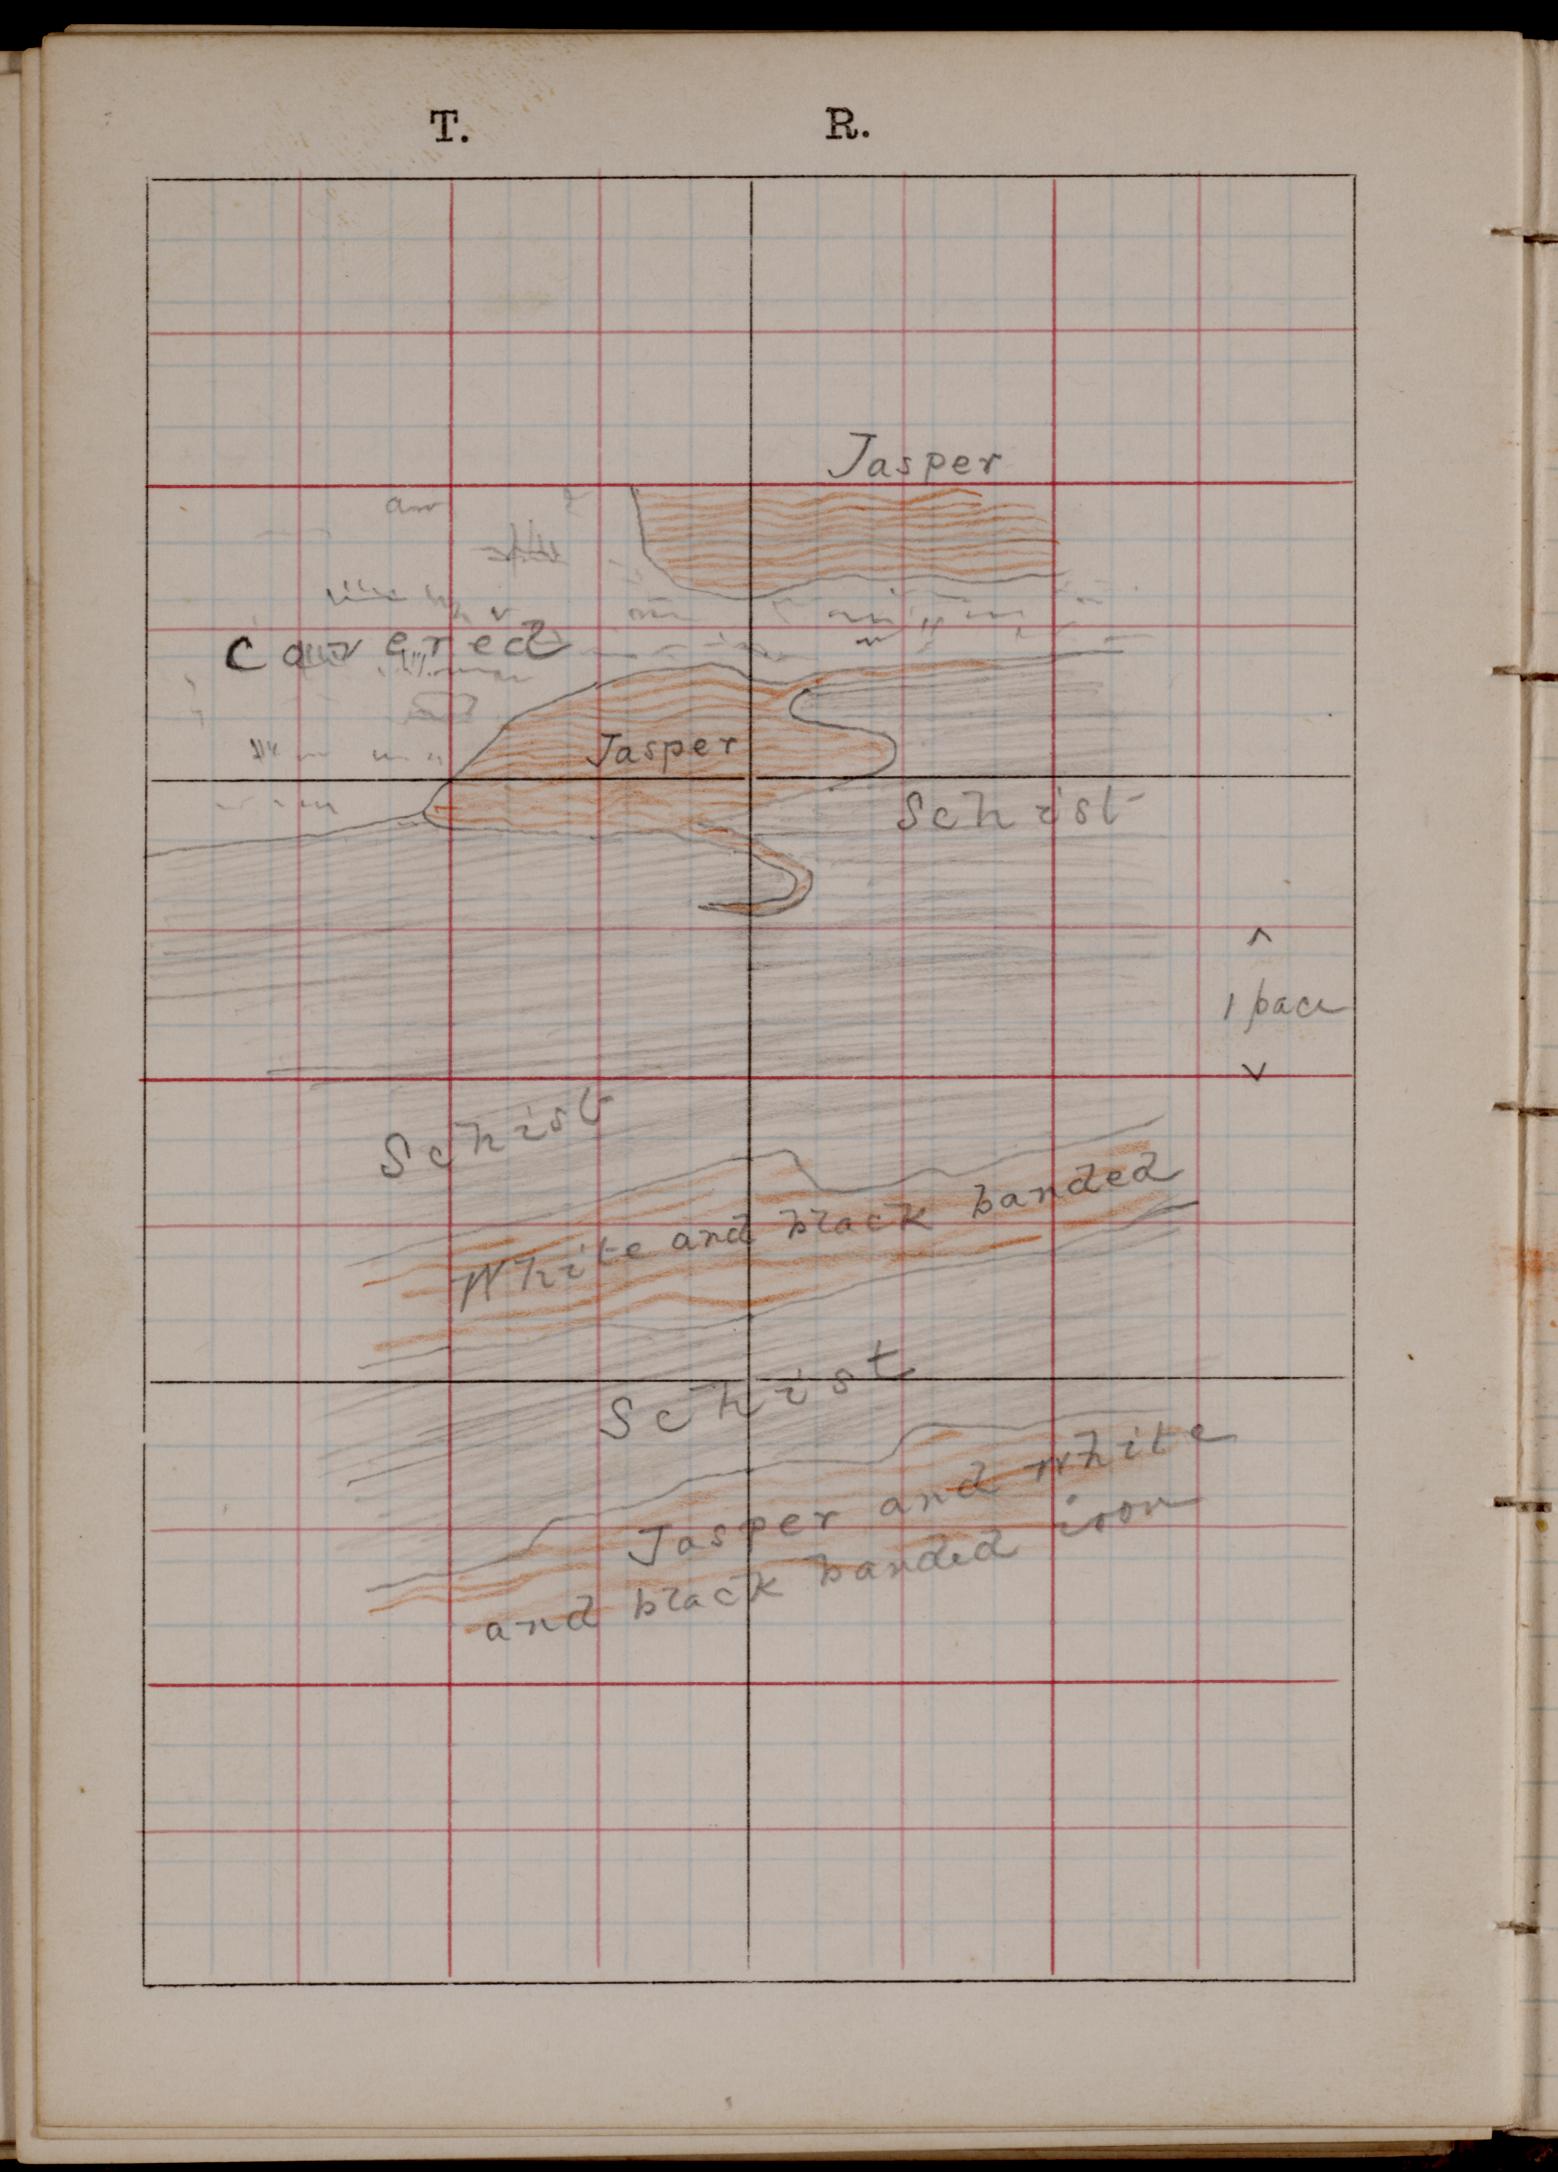 T. R.
Jasper
Covered
Jasper
Schist
1 pace
Schist
White and black banded
Schist
Jasper and White
and black banded iron